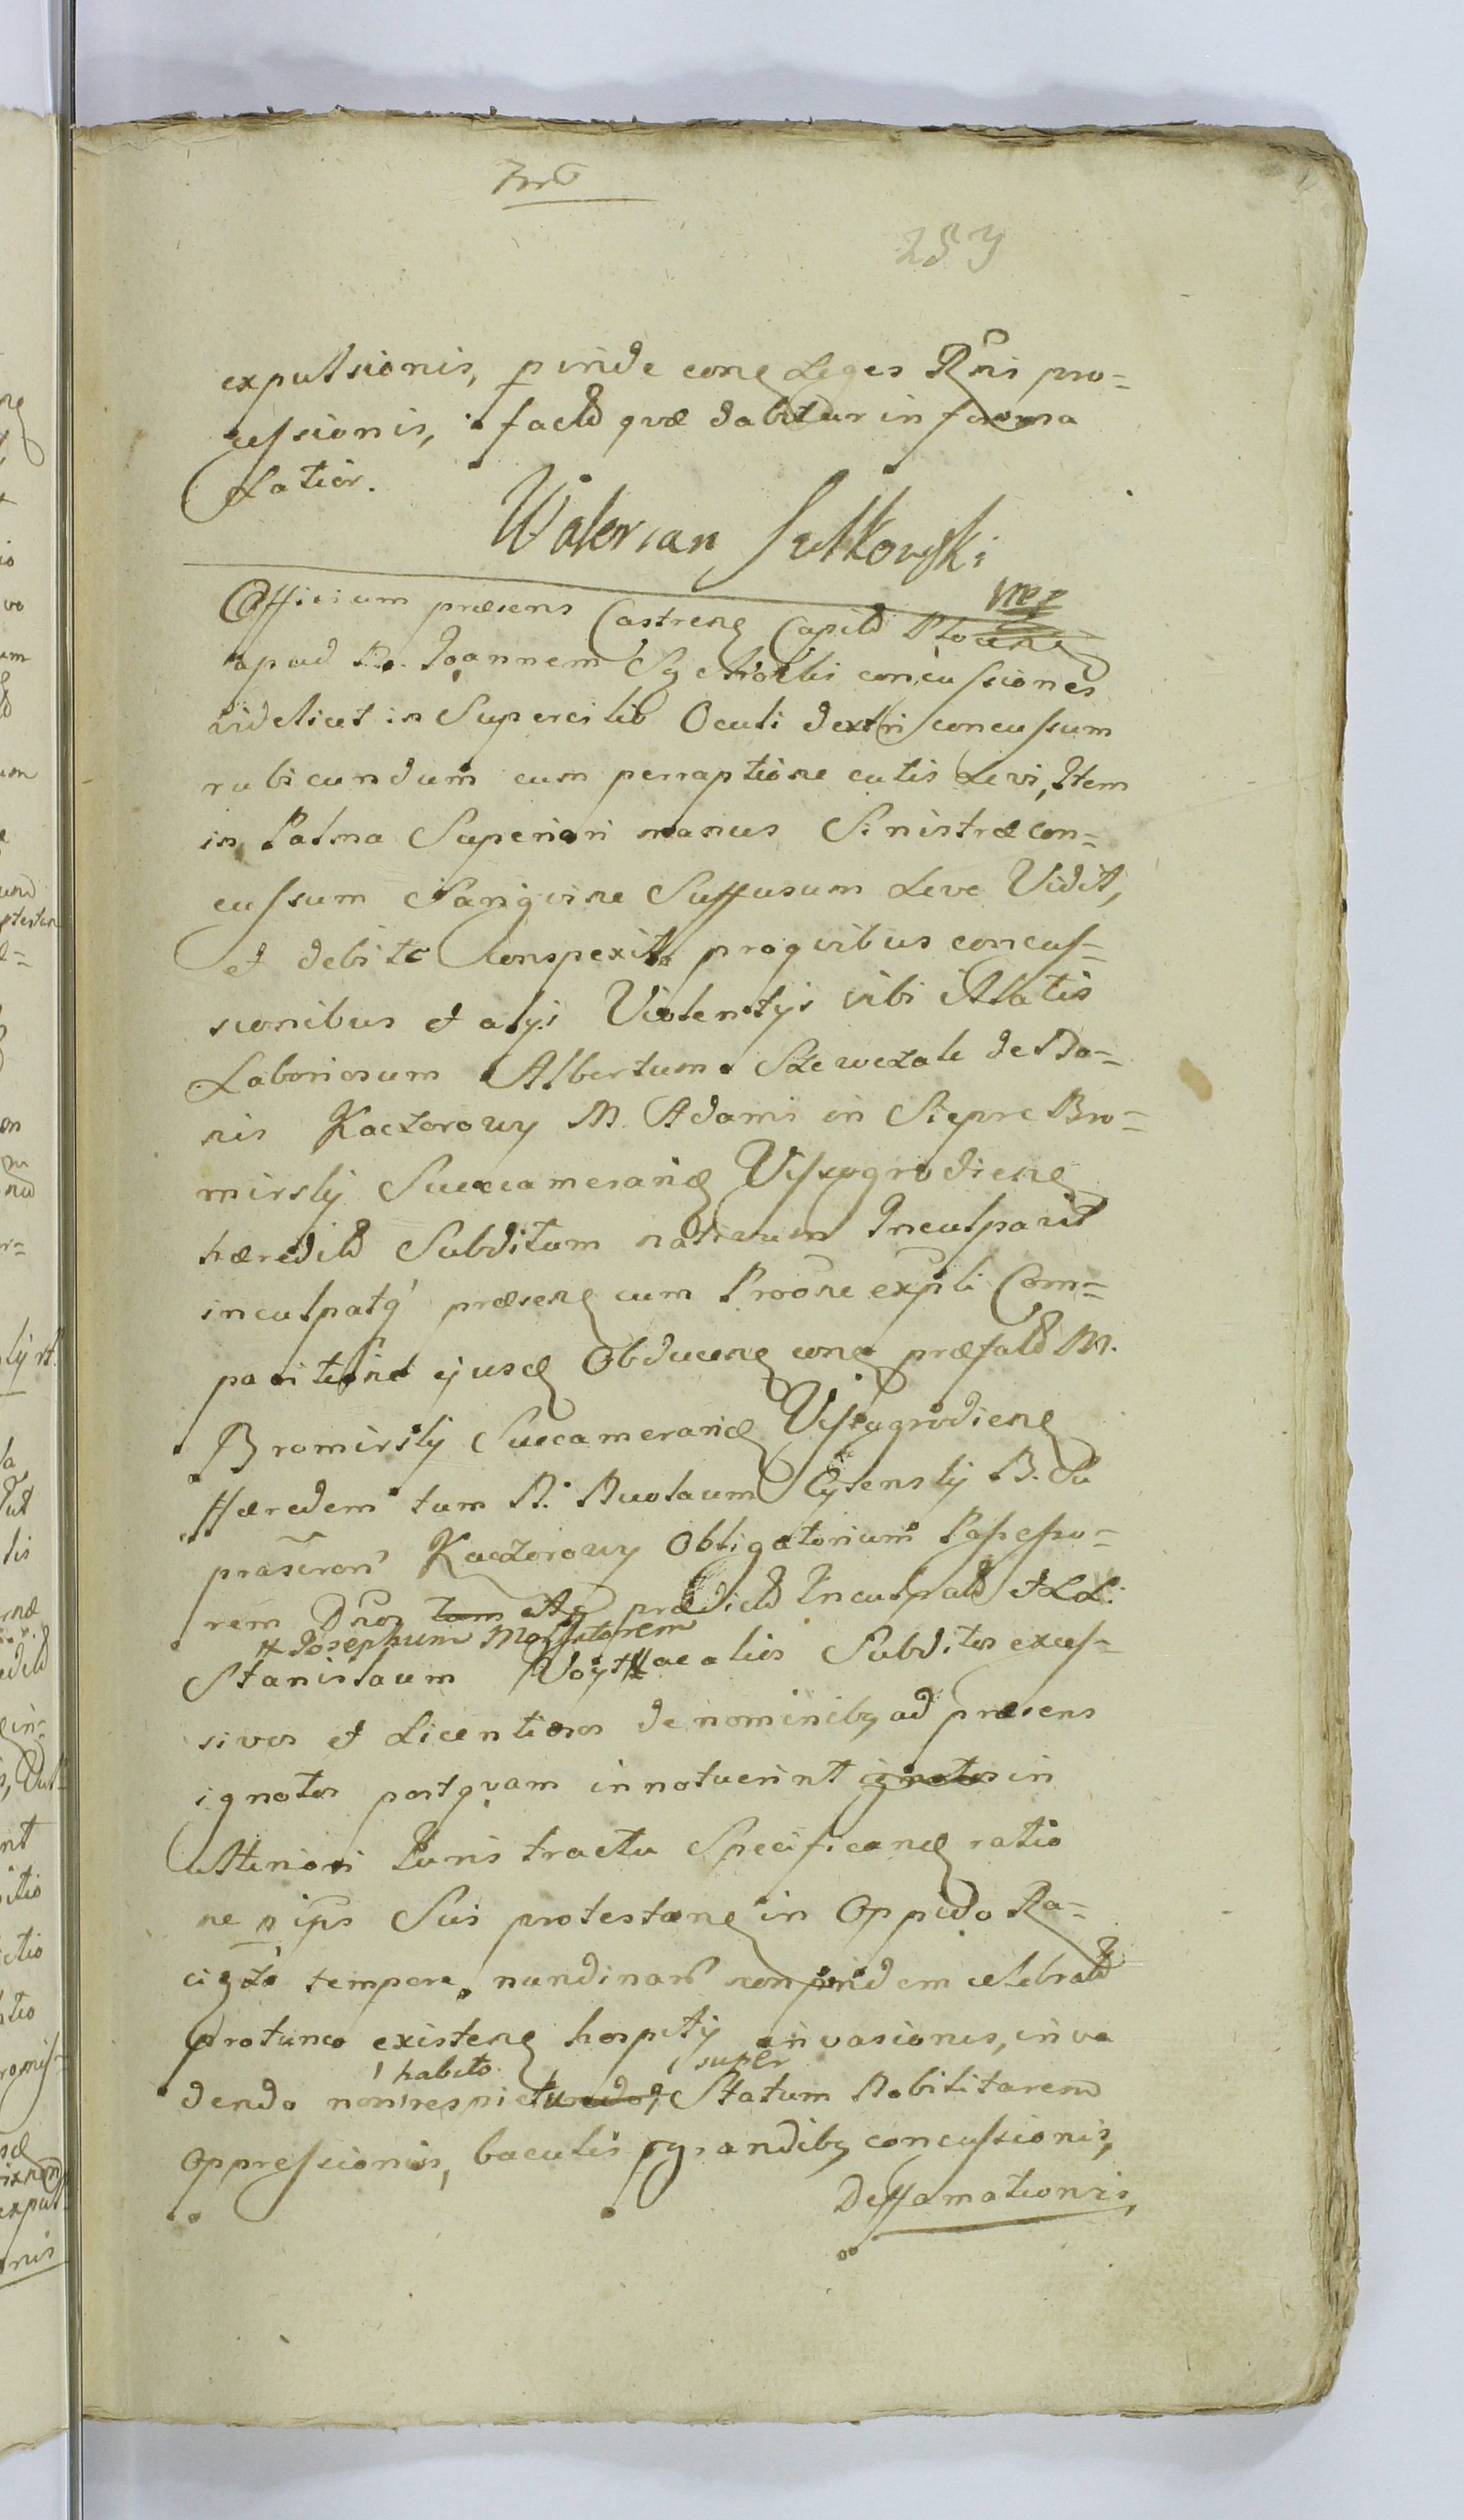 253
expulsionis, pinde cong Leges Rnis pro=
cessionis, factd quæ dabitur in forma
Latior.
Walerian Sutkowski
mpp
Officium præsens Castreng Capitd Plocens
apud N. Joannem concussiones
videlicet in Supercilio Oculi dextri concussum
rubicundum cum perraptione cutis Levi, Item
in Palma Superiori manus Sinistræ con=
cussum Sangvine Suffusum Leve Vidit,
et debite Conspexit, pro qvibus concus=
sionibus et alijs Violentijs sibi illatis
Laboriosum Albertum de Bo=
nis Kaczorowy M. Adami in Siepre Bro=
mirskj Succamerarij Vissogrodieng
hæreditd Subditum nativum Inculpavit
inculpatq præseng cum Proône expli Com=
paritione ejusd Obduceng cong præfatd M.
Bromirskj Succamerarid Vissogrodieng
Hæredem tum N. Nicolaum B. Su
prascron Kaczorowy Obligatorium Possesso=
rem Dnos tam prædictd Inculpatd et LL.
et Josephum
Stanislaum Woyt ac alios Subditos exces=
sivos et Licentiosos de nominibq ad præsens
ignotos postqvam innotuerint ignotos in
Ulteriori Juris tractu Specificand ratio
ne pips Suis protestang in Oppido Ra=
ciąż tempore nundinarum non pridem celebratd
protunc existeng hospitij invasionis, inva
dendo non habito respectu super Statum Nobilitarem
Oppressionis, baculis pgrandibq concussionis,
Deffamationis,